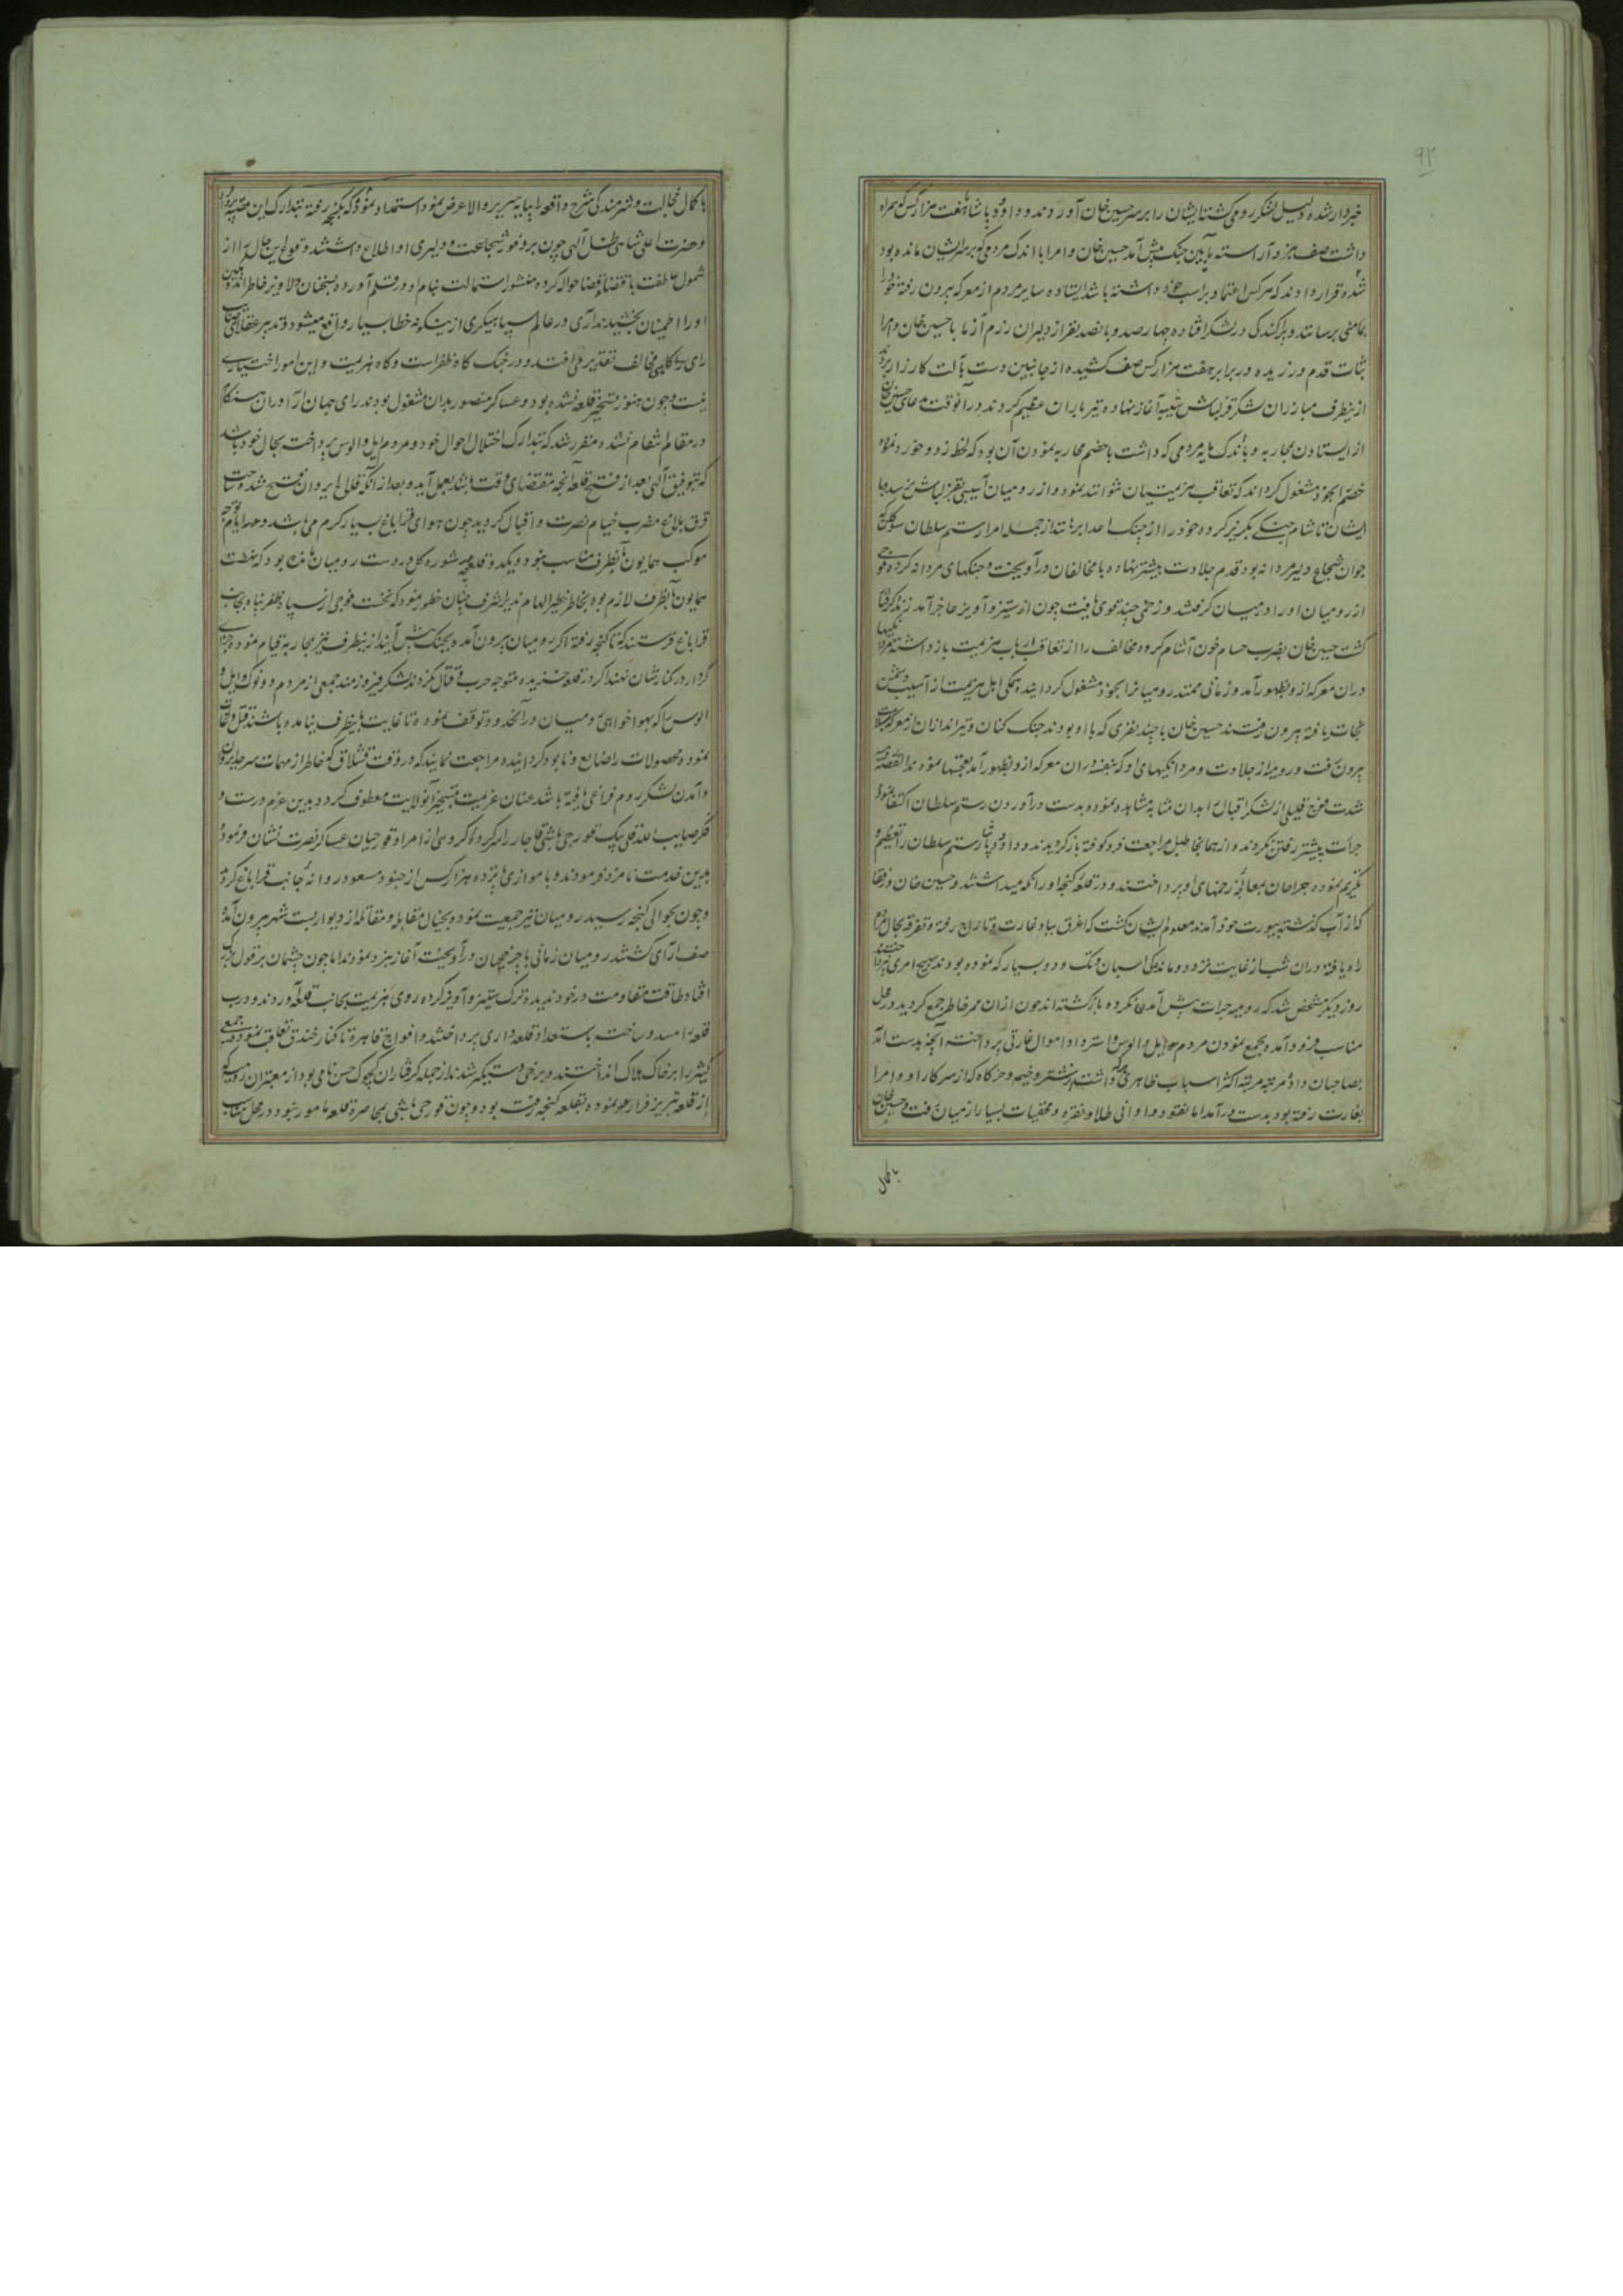 ٩٢
خبردار شده دلیل لشکر رومی کشتند ایشان را بر سر حسین خان آوردند و داود پاشا با هفت هزار کس که همراه
داشت صف نبرد آراسته بآیین جنک پیش آمد حسین خان و امرا با اندک مردمی که بر سر ایشان مانده بود
شده قرار دادند که هر کس اعتماد بر اسب خود داشته باشد ایستاده سایر مردم از معرکه بیرون رفته خود را
بمامنی برسانند و پراکندکی در لشکر افتاده چهار صد و پانصد نفر از دلیران رزم آزما با حسین خان و امرا
ثبات قدم ورزیده در برابر هفت هزار کس صف کشیده از جانبین دست بآلت کارزار بردند
از ینطرف مبارزان لشکر قزلباش شیبه آغاز نهاده تیر باران عظیم کردند در آنوقت مدعای حسین خان
از ایستادن محاربه و باندک مایه مردمی که داشت با خصم محاربه نمودن آن بود که لحظه زد و خورد نموده
خصم را بخود مشغول کرداند که تعاقب هزیمتیان نتوانند نمود و از رومیان آسیبی بقزلباش نرسد با
ایشان تا شام جنک بکریز کرده خود را از جنک اعدا برهانند از جمله امرا رستم سلطان سوکلن که
جوان شجاع دلیر مردانه بود قدم جلادت پیشتر نهاده با مخالفان در آویخت و جنکهای مردانه کرده فوجی
از رومیان او را در میان کرفتند و زخمی چند قوی یافت چون از ستیز و آویز عاجز آمد زنده کرفتار
کشت حسین خان بضرب حسام خون آشام کروه مخالف را از تعاقب ارباب هزیمت باز داشته مردانکیها
در ان معرکه از و بظهور آمد و زمانی ممتد رومیانرا بخود مشغول کردانیده همکی اهل هزیمت از آسیب دشمن
نجات یافته بیرون رفتند حسین خان با چند نفری که با او بودند جنک کنان و تیراندازان از معرکه بسلامت
بیرون رفت و رومیه از جلادت و مردانکیهای او که بنفسه دران معرکه از و بظهور آمد تعجبها نمودند القصه رومیه
شدت فوج قلیلی از لشکر اقبال را بدان مثابه مشاهده نموده بدست درآوردن رستم سلطان اکتفا نموده
جرأت پیشتر رفتن نکردند و از همانجا طبل مراجعت فرو کوفته باز کردیدند و داود پاشا رستم سلطان را تعظیم و
تکریم نموده جراحان بمعالجه زخمهای او پرداختند و در قلعه کنجه او را نکه میداشتند و حسین خان و رفقا
که از آب کذشته بیورت خود آمدند معلوم ایشان کشت که اغرق بباد غارت و تاراج رفته و تفرقه بحال مردم
راه یافته دران شب از غایت تردد و ماندکی اسبان و تک و دو بسیار که نموده بودند بهیچ امری نپرداختند
روز دیکر مشخص شد که رومیه جرات پیش آمدن نکرده بازکشته اند چون ازان ممر خاطر جمع کردید در محل
مناسب فرود آمده بجمع نمودن مردم و ایل و الوس و استرداد اموال غارتی پرداخته آنچه بدست آمد
بصاحبان داده مرتبه مرتبه اکثر اسباب ظاهری که داشتند از شتر و خیمه و خرکاه که از سرکار او و امرا
بغارت رفته بود بدست درآمد اما نقود و اوانی طلا و نقره و مخفیات بسیار از میان رفت و حسین خان
با کمال
با کمال خجالت و شرمندکی شرح واقعه را بپایه سریر والا عرض نمود استمداد نمود که بکنجه رفته بتدارک این قضیه پردازد
و حضرت اعلی شاهی ظل آلهی چون بر وفور شجاعت و دلیری او اطلاع داشتند وقوع این حال را از
شمول عاطفت باقتضای قضا حواله کرده منشور استمالت بنام او در قلم آورده بسخنان دلاویز خاطر اندوهکین
او را اطمینان بخشیدند آری در عالم سپاهیکری ازینکونه خطا بسیار واقع میشود و تدبیر عقلای صایب
رای کاهی مخالف تقدیر می افتد و در جنک کاه ظفر است و کاه هزیمت و این امور اختیاری
نیست و چون هنوز تسخیر قلعه نشده بود و عساکر منصور بدان مشغول بودند رای جهان آرا دران هنکام
در مقام انتقام نشده مقرر شد که بتدارک اختلال احوال خود و مردم ایل و الوس پرداخته بحال خود باشد
که بتوفیق آلهی بعد از فتح قلعه آنچه مقتضای وقت باشد بعمل آید و بعد از آنکه قلاع ایروان مفتوح شد و ساحت
قرق بلاغ مضرب خیام نصرت و اقبال کردید چون هوای قراباغ بسیار کرم می باشد و در ان ایام توجه
موکب همایون بانطرف مناسب نبود و یکدو قلعه شوره کل در دست رومیان مانده بود که نهضت
همایون بانطرف لازم بود بخاطر خطیر الهام پذیر اشرف چنان خطور نمود که نخست فوجی از سپاه ظفر پناه بجانب
قراباغ فرستند که تا کنجه رفته اکر رومیان بیرون آمده بجنک پیش آیند از ینطرف نیز بمحاربه قیام نموده جزای
کردار در کنارشان نهند اکر در قلعه خزیده متوجه حرب و قتال نکردند لشکر فیروزمند جمعی از مردم دو توک و ایل و
الوس را که بهواخواهی رومیان در آنحدود توقف نموده تا غایت باینطرف نیامده باشند قتل و غارت
نموده محصولات را ضایع و نابود کردانیده مراجعت نمایند که در وقت قشلاق که خاطر از مهمات سرحد ایروان
و آمدن لشکر روم فراغی یافته باشد عنان عزیمت بتسخیر آنولایت معطوف کردد بدین عزم درست و
فکر صایب الله قلی بیک قورچی باشی قاجار را سر کرده کروهی از امرا و قورچیان عساکر نصرت نشان فرموده
بدین خدمت نامزد فرمودند و با موازی پانزده هزار کس از جنود مسعود روانه جانب قراباغ کردند
و چون بحوالی کنجه رسید رومیان نیز جمعیت نموده بخیال مقابله و مقاتله از دیوار بست شهر بیرون آمده
صف آرای کشتند رومیان زمانی با چرخچیان در آویخته آغاز نبرد نمودند اما چون چشمان بر قول بزرک
افتاد طاقت مقاومت در خود ندیده ترک ستیز و آویز کرده روی هزیمت بجانب قلعه آوردند و درب
قلعه را مسدود ساخته باستعداد قلعه داری پرداختند و افواج قاهره تا کنار خندق تعاقب نموده جمعی
کثیر را بر خاک هلاک انداختند و برخی دستکیر شدند از جمله کرفتاران کچوک حسن نامی بود از معتبران رومیه که
از قلعه تبریز فرار نموده بقلعه کنجه رفته بود و چون قورچی باشی بمحاصره قلعه مامور نبود در محل مناسب